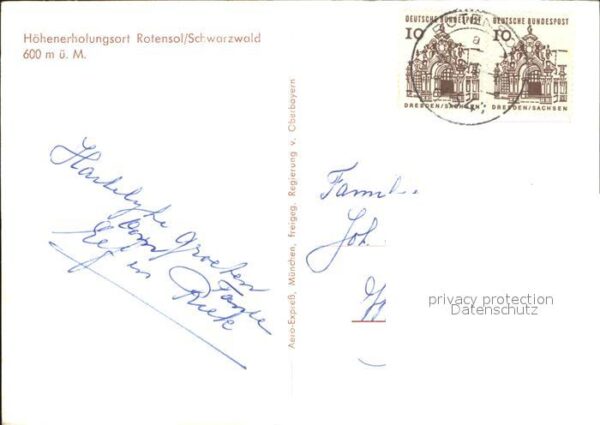 Höhenerholungsort Rotensol/Schwarzwald
600 m ü. M.
DEUTSCHE BUNDESPOST
10
DRESDEN/SACHSEN
DEUTSCHE BUNDESPOST
10
DRESDEN/SACHSEN
a
Hartelijke groeten
Tante
en Riek
Aero-Expreß, München, freigeg. Regierung v. Oberbayern
Fam
Joh.
privacy protection
Datenschutz